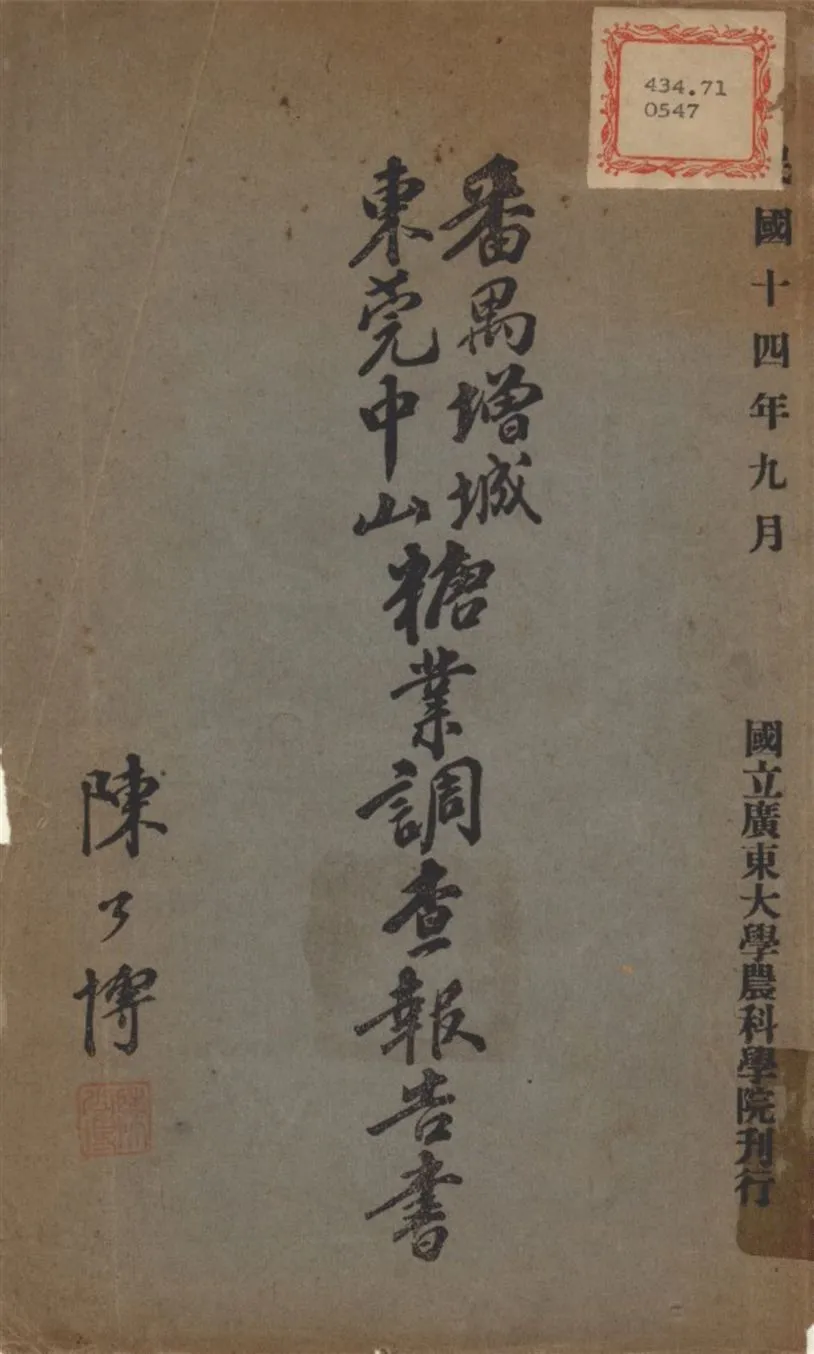 434.71
0547
民國十四年九月
國立廣東大學農科學院刊行
番禺增城
東莞中山
糖業調查報告書
陳公博